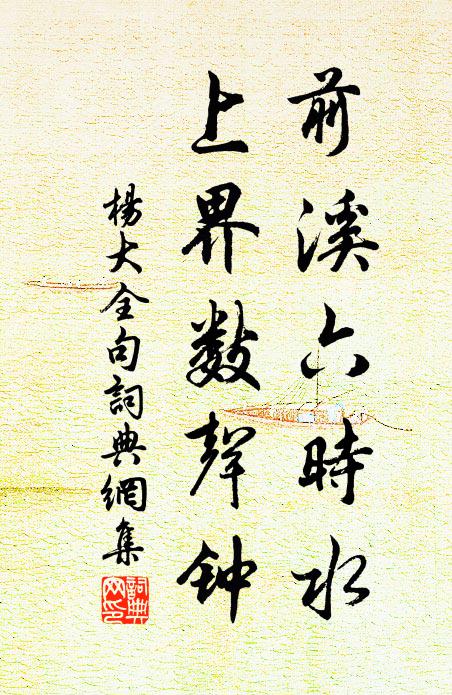 前溪六時水
上界数聲钟
楊大全句詞典網集
詞典
网印